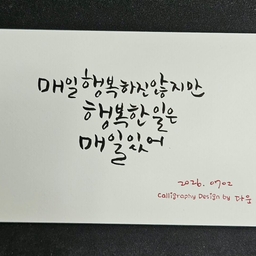 매일 행복하진 않지만
행복한 일은
매일 있어
2026. 0702
Calligraphy Design by 다움